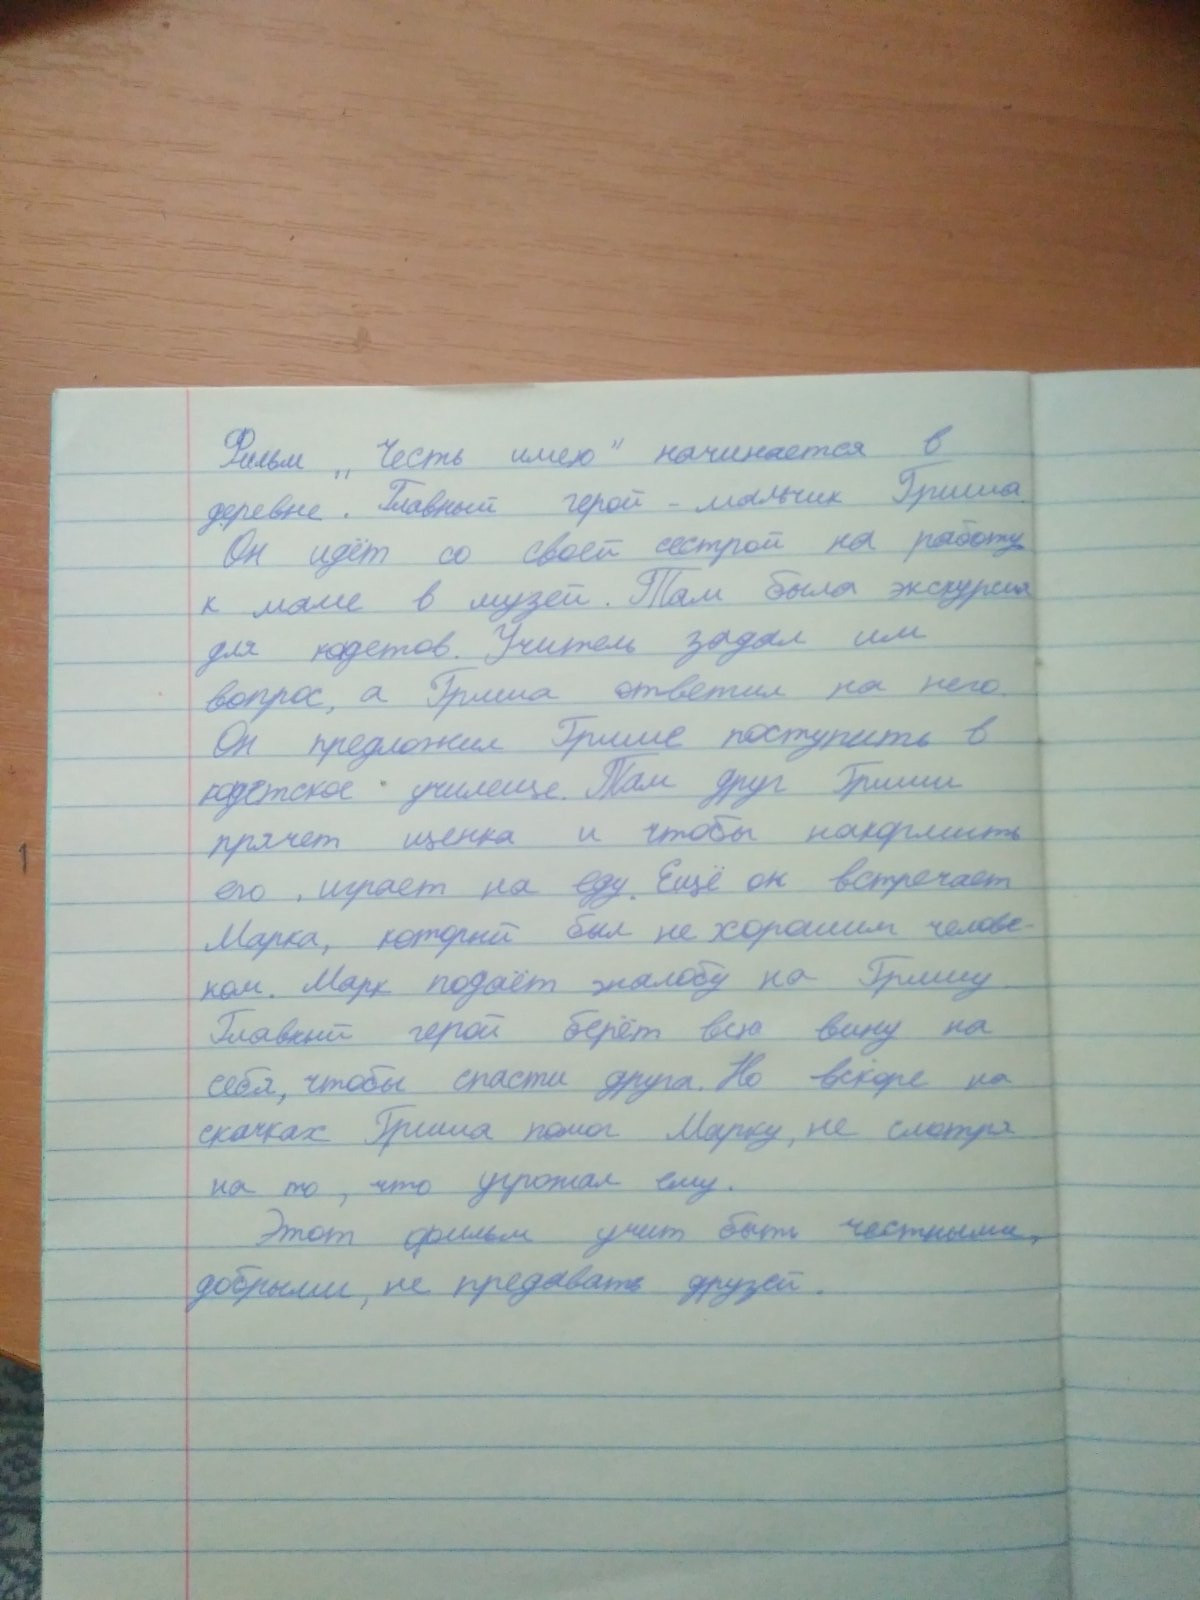 Фильм „Честь имею" начинается в
деревне. Главный герой - мальчик Гриша.
Он идёт со своей сестрой на работу
к маме в музей. Там была экскурсия
для кадетов. Учитель задал им
вопрос, а Гриша ответил на него.
Он предложил Грише поступить в
кадетское училище. Там друг Гриши
прячет щенка и чтобы накормить
его, играет на еду. Ещё он встречает
Марка, который был не хорошим челове-
ком. Марк подаёт жалобу на Гришу
Главный герой берёт всю вину на
себя, чтобы спасти друга. Но вскоре на
скачках Гриша помог Марку, не смотря
на то, что угрожал ему.
Этот фильм учит быть честными,
добрыми, не предавать друзей.
1